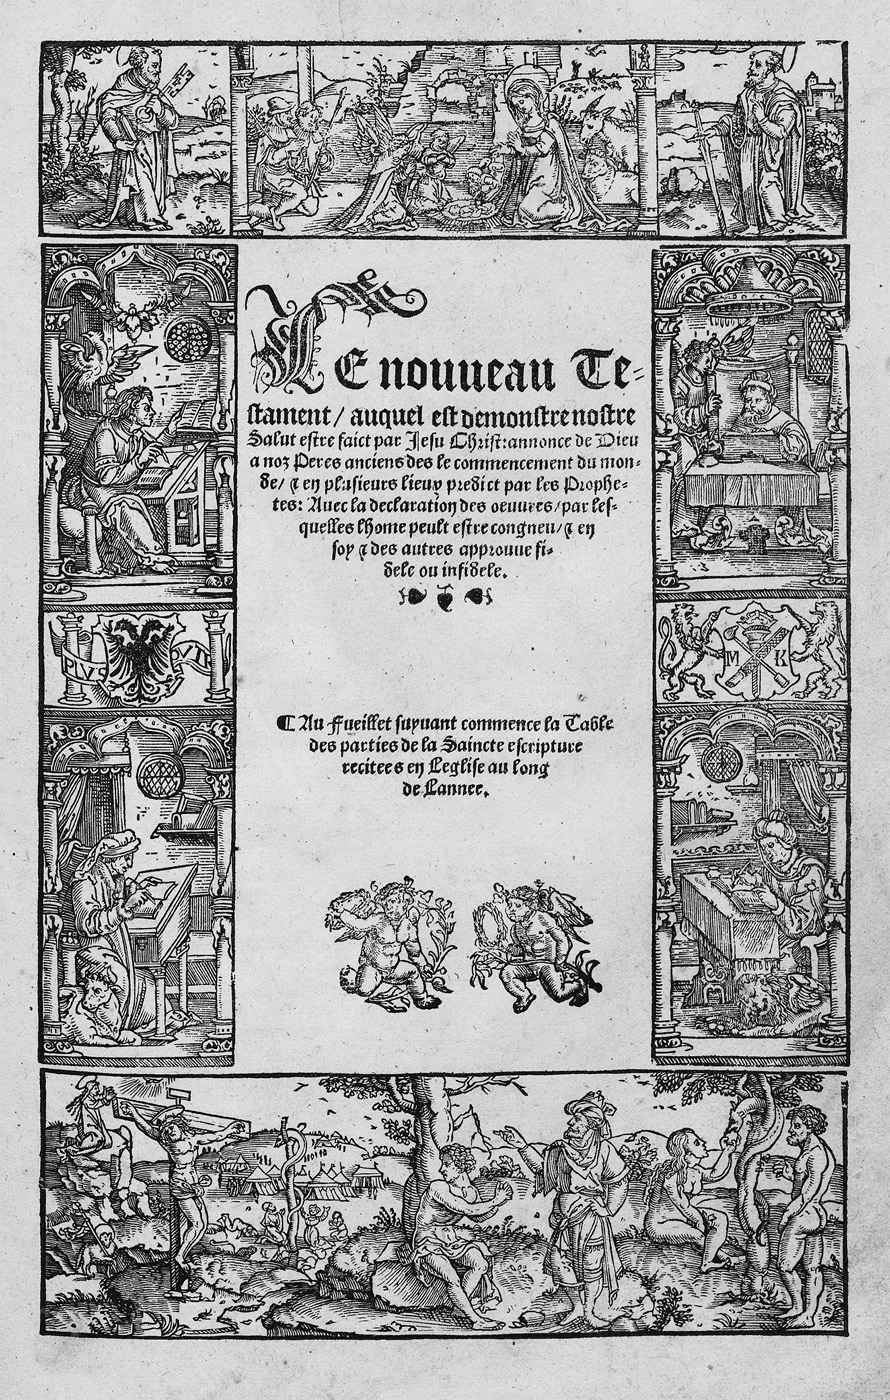 LE nouueau Te-
stament/ auquel est demonstre nostre
Salut estre faict par Jesu Christ: annonce de Dieu
a noz Peres anciens des le commencement du mon-
de/ ⁊ en plusieurs lieux predict par les Prophe-
tes: Auec la declaration des oeuures/ par les-
quelles lhome peult estre congneu/ ⁊ en
soy ⁊ des autres approuue fi-
dele ou infidele.
PLVS OVLT
M K
¶ Au Fueillet suyuant commence la Table
des parties de la Saincte escripture
recitees en Leglise au long
de Lannee.